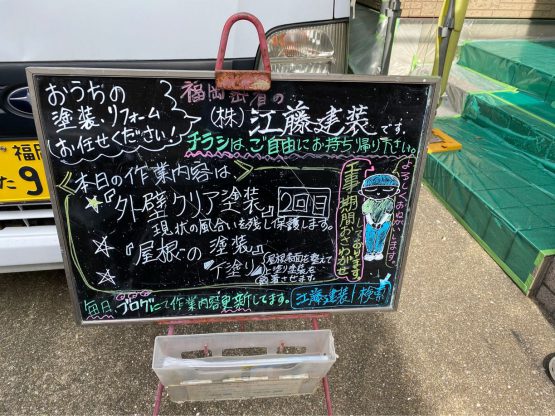 おうちの
塗装・リフォーム
お任せください!
福岡密着の
(株)江藤建装です。
チラシは、ご自由にお持ち帰り下さい。
本日の作業内容は
☆『外壁クリア塗装』2回目
現状の風合いを残し保護します。
☆『屋根の塗装』
下塗り
屋根表面を整えて
塗り塗装を
密着させます。
よろしくおねがいします。
工事期間中
おさわがせ
しております
毎日、ブログにて作業内容更新してます。
江藤建装 検索
福岡
た 9